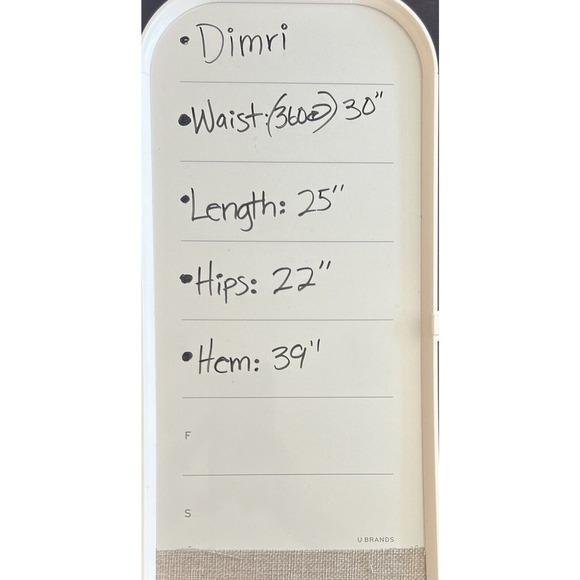 • Dimri
• Waist: (360°) 30"
• Length: 25"
• Hips: 22"
• Hem: 39"
F
S
U BRANDS